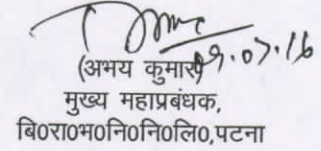 09.07.16
(अभय कुमार)
मुख्य महाप्रबंधक,
बि०रा०भ०नि०नि०लि०,पटना